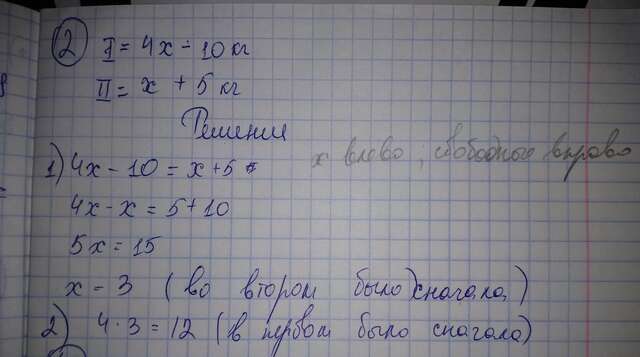 2 I = 4х - 10 кг
II = х + 5 кг
Решение
1) 4х - 10 = х + 5 х влево; свободного вправо
4х - х = 5 + 10
5х = 15
х = 3 (во втором было) сначала)
2) 4 · 3 = 12 (в первом было сначала)